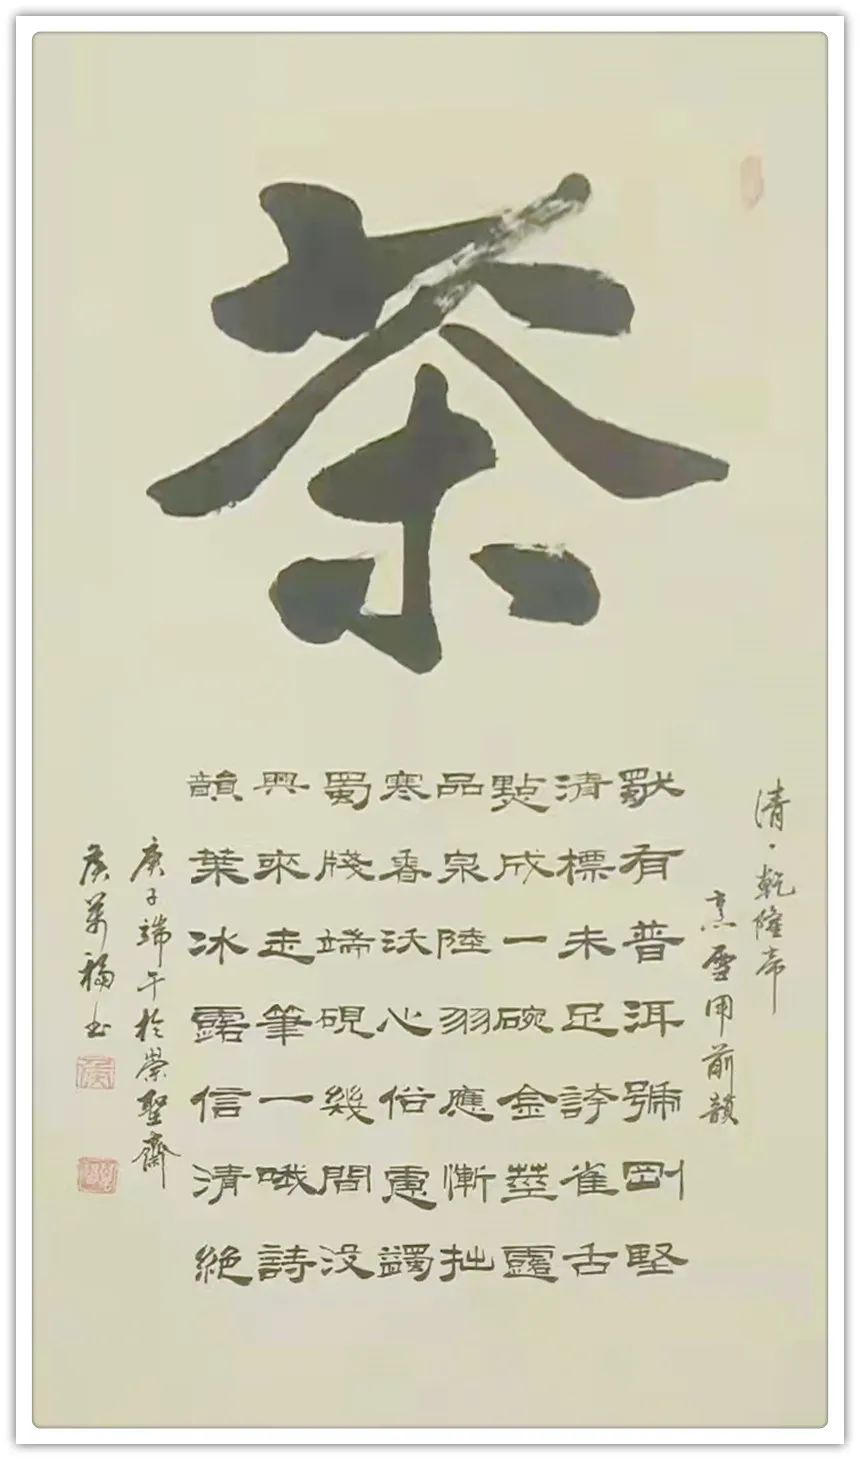 茶
清·乾隆帝
烹雪用前韻
有普洱號剛堅
清標未足誇雀舌
點成一碗金莖露
品泉陸羽應慚拙
寒香沃心俗慮蠲
蜀牋端硯幾間没
興來走筆一哦詩
韻葉冰露信清絕
庚子端午於榮聖齋
侯萬福书